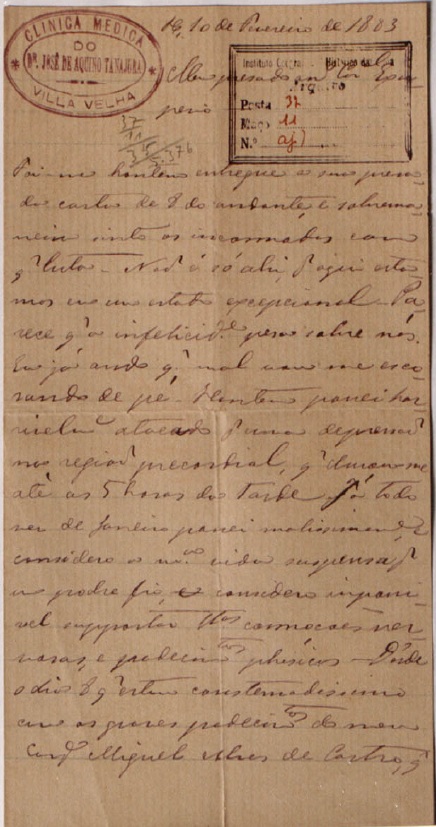 CLINICA MEDICA
DO
DR. JOSÉ DE AQUINO TANAJURA
VILLA VELHA
10 de Fevereiro de 1883
Meu presado
Instituto
Pasta 37
Maço 11
N.º aj)
37
11
Foi-me hontem entregue a sua presa
da carta de 8 do andante, e sobrema
neira sinto os incommodos com
q' luta. Não é só ahi, aqui esta
mos em um estado excepcional. Pa
rece q' a infelicid.e pesa sobre nós.
Eu já ando q' mal me esco
rando de pé. Hontem passei hor
rivelm.e atacado d'uma depressão
na região precordial, q' durou-me
até as 5 horas da tarde. Já todo
mez de Janeiro passei malissimam.e, e
considero a m.a vida suspensa p
um podre fio, e considero impossi
vel supportar ttas commoções ner
vosas, e padecim.tos phisicos.
q' estou consternadissimo
com os graves padecim.tos do meu
Comp.e Miguel Alves de Castro, q'